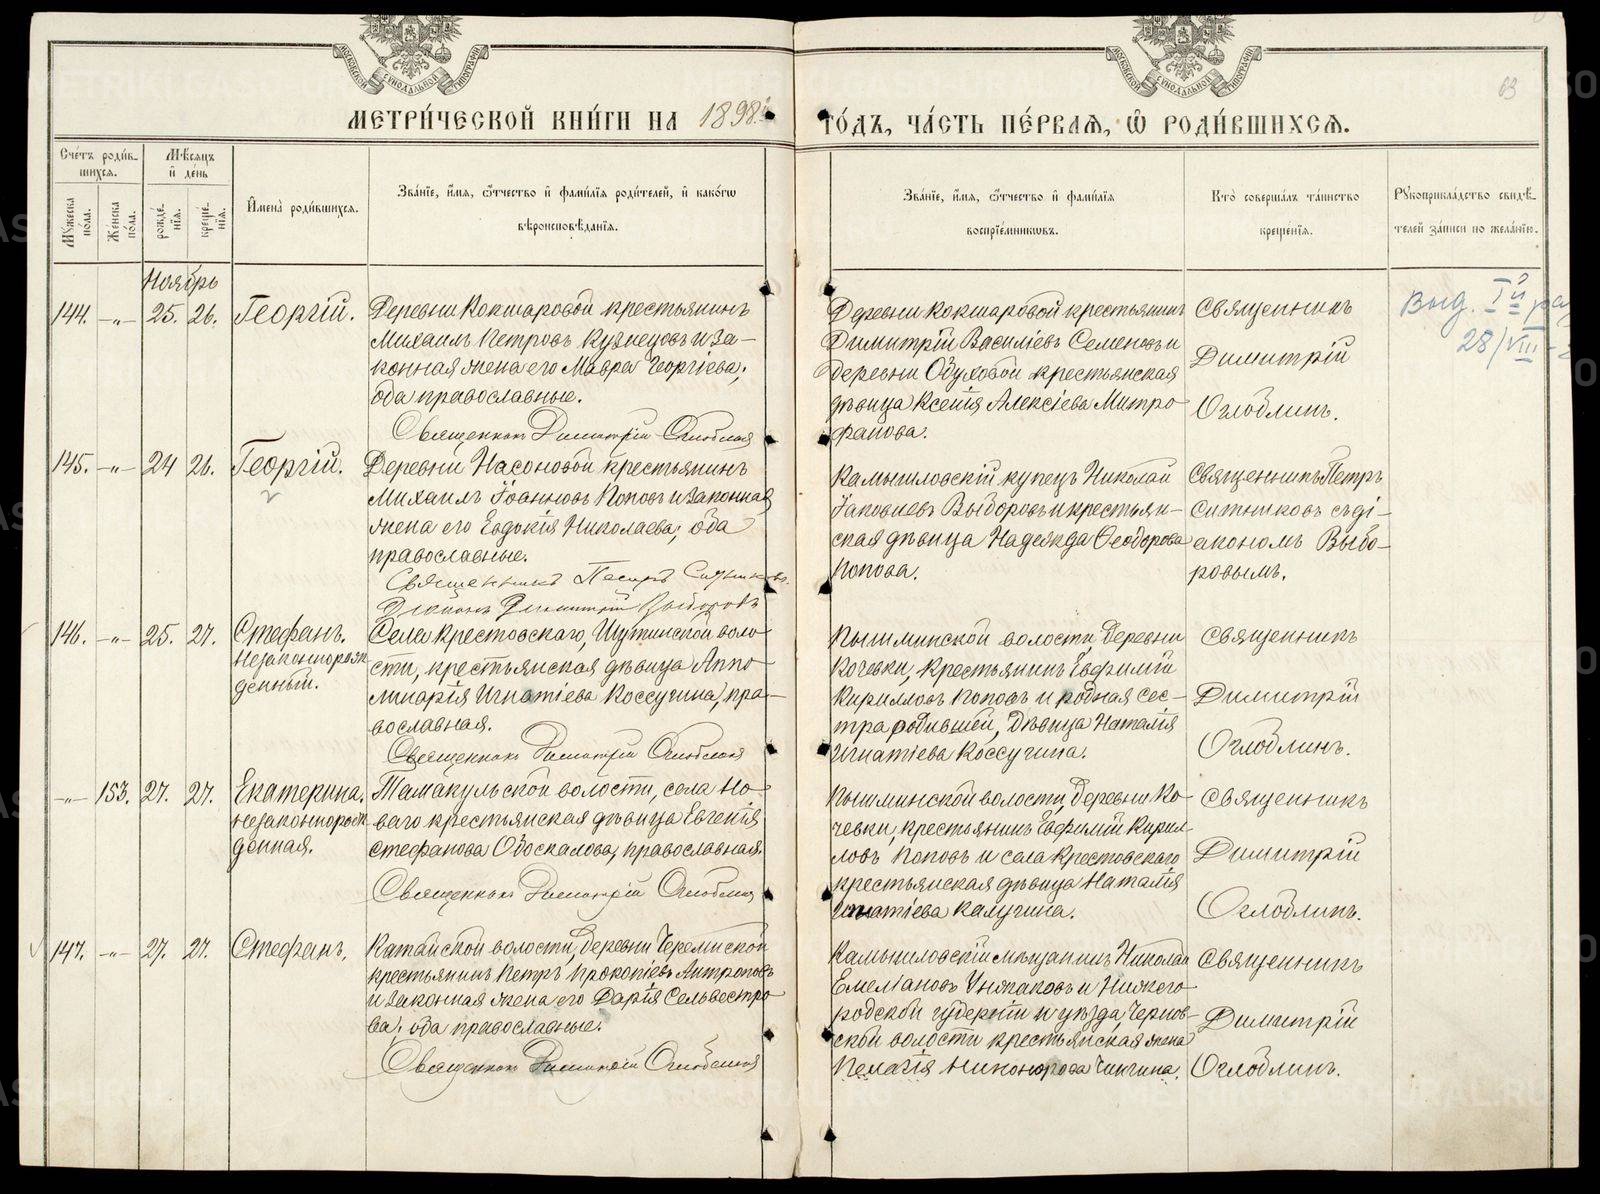 МЕТРИ́ЧЕСКОЙ КНИ́ГИ НА 1898й ГО́ДЪ, ЧА́СТЬ ПЕ́РВАѦ, Ѽ РОДИ́ВШИХСѦ.
63
Сче́тъ роди́в-
шихсѧ.
Мѣ́сѧцъ
и҆ де́нь
Му́жеска
по́ла.
Же́нска
по́ла.
рожде́-
нїѧ.
креще́-
нїѧ.
И҆мена̀ роди́вшихсѧ.
Зва́нїе, и҆́мѧ, ѻ҆́тчество и҆ фами́лїѧ роди́телей, и҆ како́гѡ
вѣроисповѣ́данїѧ.
Зва́нїе, и҆́мѧ, ѻ҆́тчество и҆ фами́лїѧ
воспрїе́мниковъ.
Кто̀ соверша́лъ та́инство
креще́нїѧ.
Рꙋкоприкла́дство свидѣ́-
телей за́писи по жела́нїю.
Ноябрь
144. -„- 25. 26. Георгій.
Деревни Кокшаровой крестьянинъ
Михаилъ Петровъ Кузнецовъ и за-
конная жена его Мавра Георгіева,
оба православные.
Священникъ Димитрій Оглоблинъ
Деревни Кокшаровой крестьянинъ
Димитрій Василіевъ Семеновъ и
деревни Обуховой крестьянская
дѣвица Ксенія Алексіева Митро
фанова.
Священникъ
Димитрій
Оглоблинъ.
Выд. Iй
28/VIII
145. -„- 24 26. Георгій.
Деревни Насоновой крестьянинъ
Михаилъ Іоанновъ Поповъ и законная
жена его Евдокія Николаева, оба
православные.
Священникъ Петръ Ситниковъ.
Діаконъ Димитрій Выборовъ
Камышловскій купецъ Николай
Іаковлевъ Выборовъ и крестьян-
ская дѣвица Надежда Ѳеодорова
Попова.
Священникъ Петръ
Ситниковъ съ ді-
акономъ Выбо-
ровымъ.
146. -„- 25. 27. Стефанъ.
Незаконнорож
денный.
Села Крестовскаго, Шутинской воло
сти, крестьянская дѣвица Аппо
линарія Игнатіева Коссучина, пра-
вославная.
Священникъ Димитрій Оглоблинъ
Пышминской волости, деревни
Кочевки, крестьянинъ Евфимій
Кирилловъ Поповъ и родная сес-
тра родившей, дѣвица Наталія
Игнатіева Коссучина.
Священникъ
Димитрій
Оглоблинъ.
-„- 153. 27. 27. Екатерина.
незаконнорожд
денная.
Тамакульской волости, села Но-
ваго крестьянская дѣвица Евгенія
Стефанова Обоскалова, православная.
Священникъ Димитрій Оглоблинъ
Пышминской волости, деревни Ко-
чевки, крестьянинъ Евфимій Кирил-
ловъ Поповъ и села Крестовскаго
крестьянская дѣвица Наталія
Игнатіева Калугина.
Священникъ
Димитрій
Оглоблинъ.
147. -„- 27. 27. Стефанъ.
Катайской волости, деревни Черемисской
крестьянинъ Петръ Прокопіевъ Антроповъ
и законная жена его Дарія Сельвестро
ва, оба православные.
Священникъ Димитрій Оглоблинъ
Камышловскій мѣщанинъ Николай
Емеліановъ Унжаковъ и Нижего
родской губерніи и уѣзда Чернов-
ской волости крестьянская жена
Пелагія Никонорова Чингина.
Священникъ
Димитрій
Оглоблинъ.